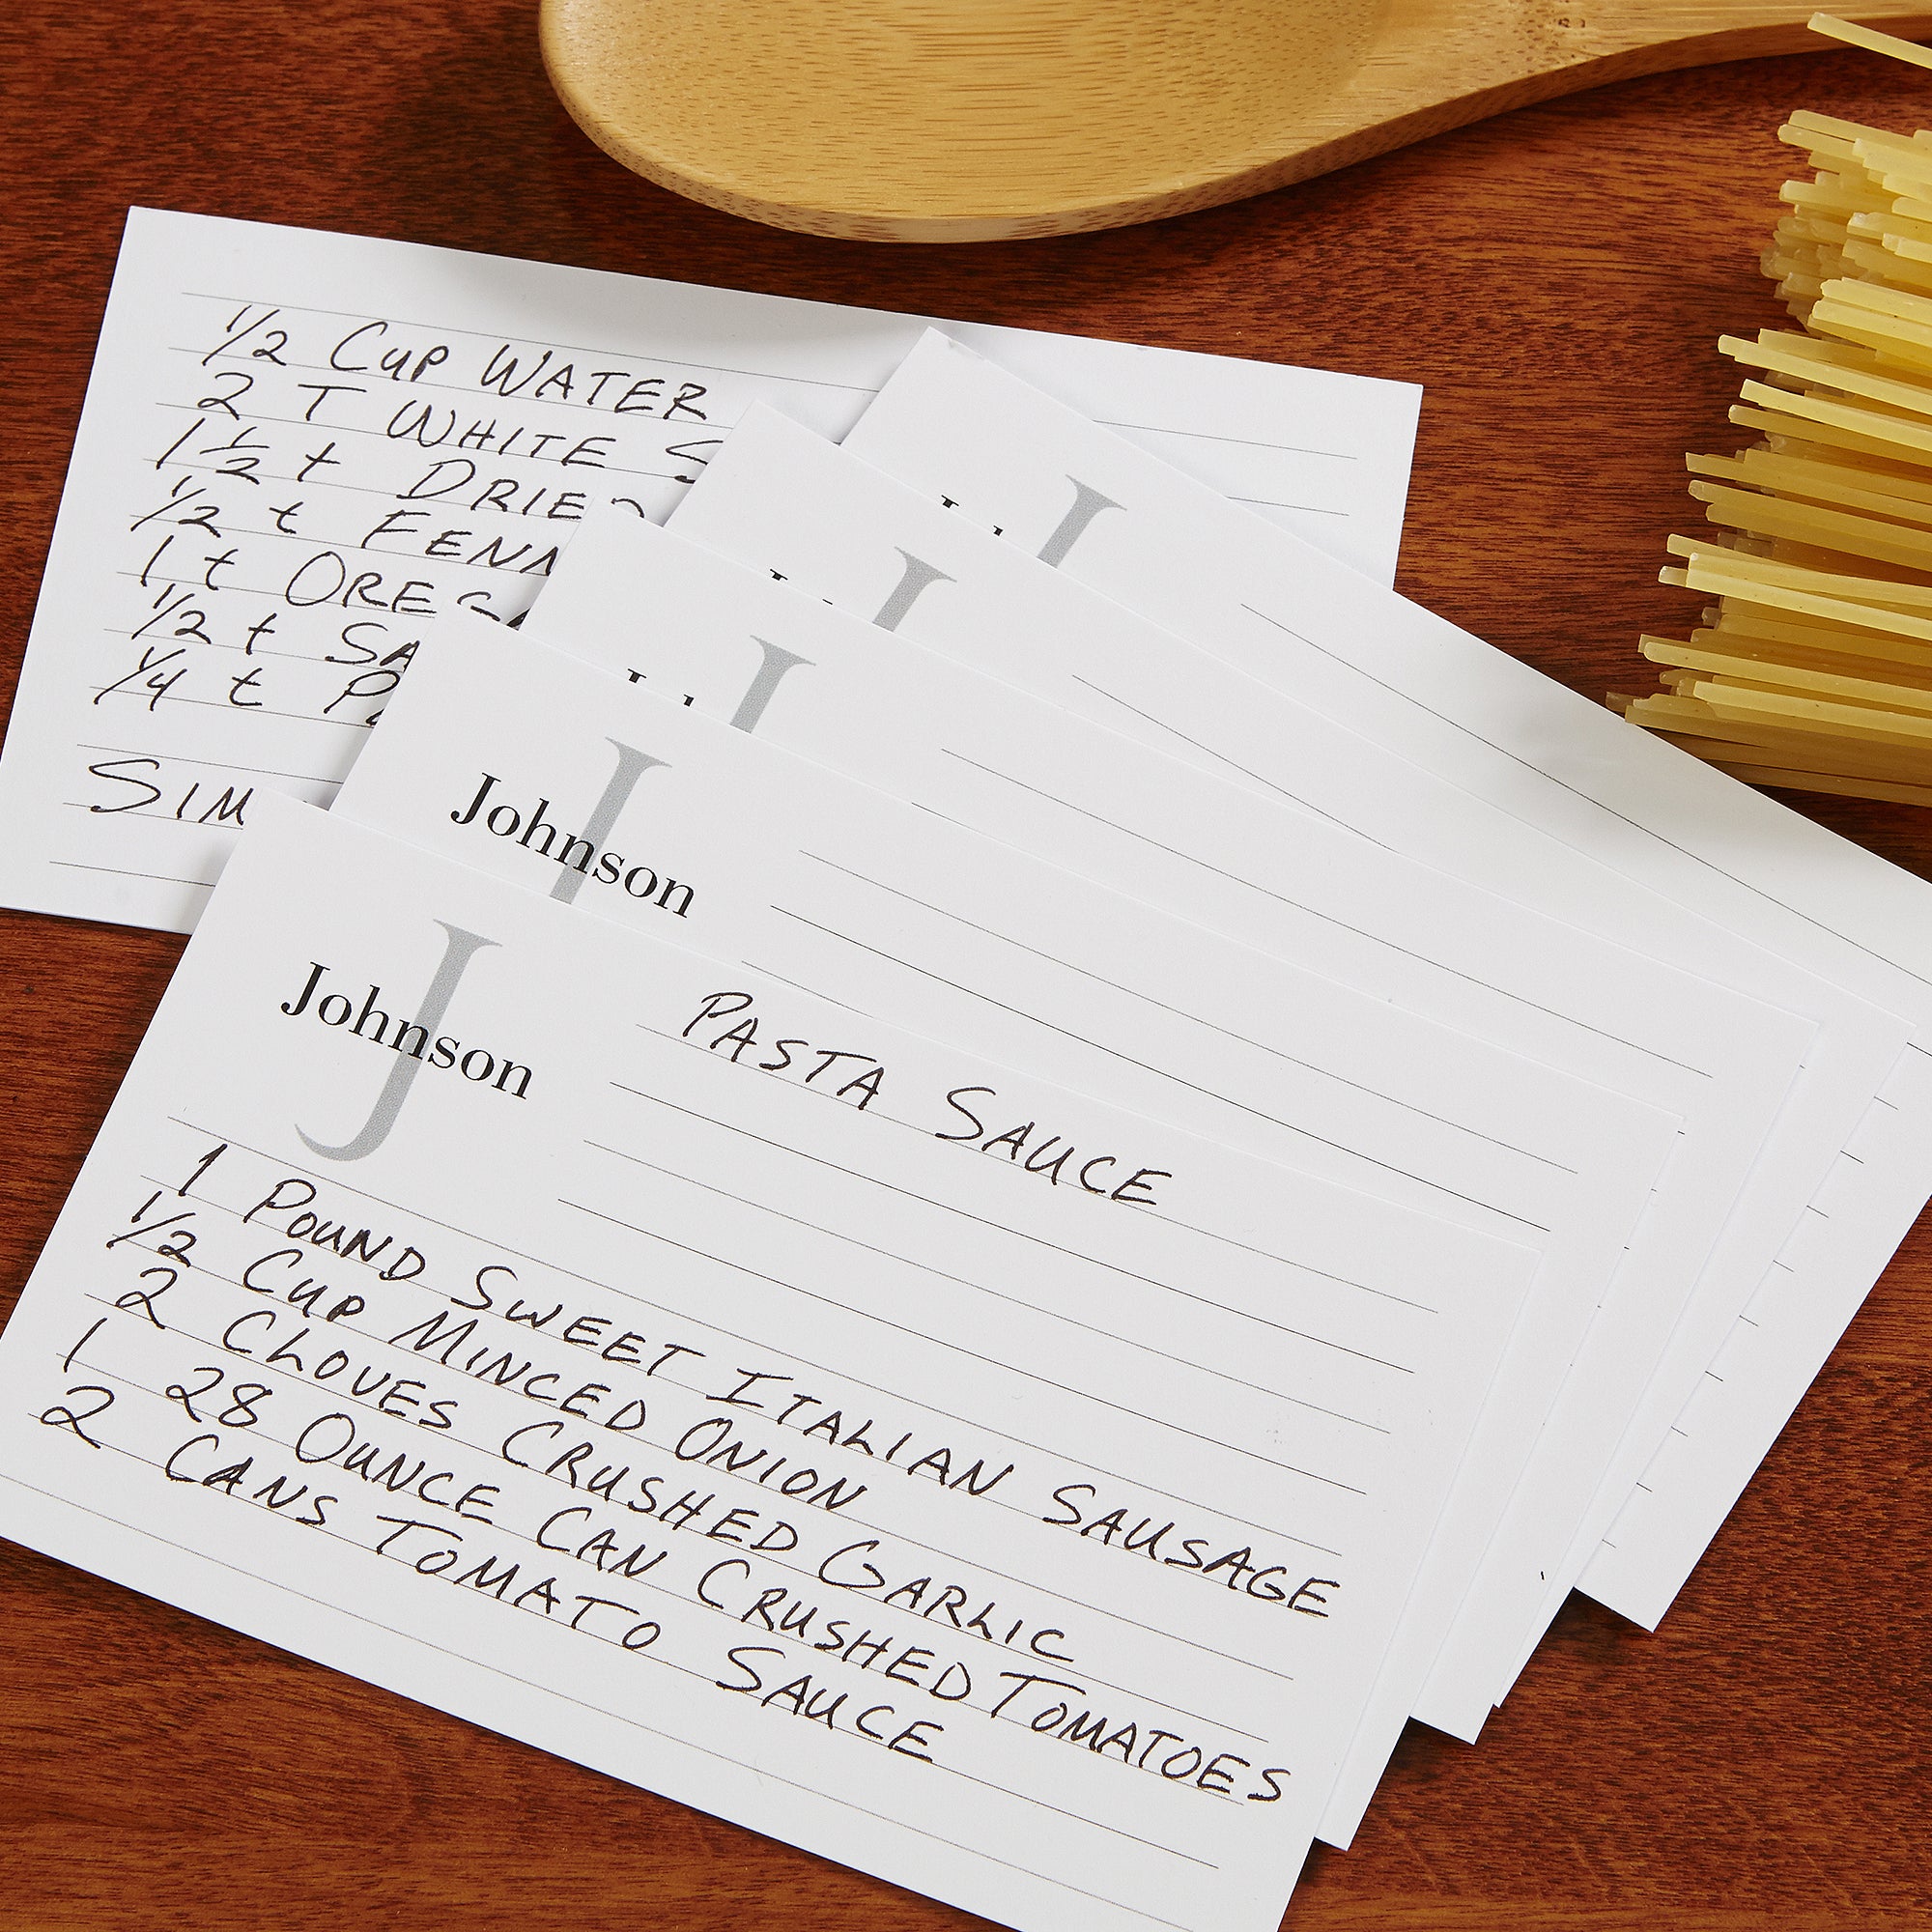 1/2 CUP WATER
2 T WHITE
1 1/2 t
1/2 t
1 t
1/2 t
1/4 t
J
J
J
J
Johnson
J
Johnson
PASTA SAUCE
1 POUND SWEET ITALIAN SAUSAGE
1/2 CUP MINCED ONION
2 CLOVES CRUSHED GARLIC
1 28 OUNCE CAN CRUSHED TOMATOES
2 CANS TOMATO SAUCE